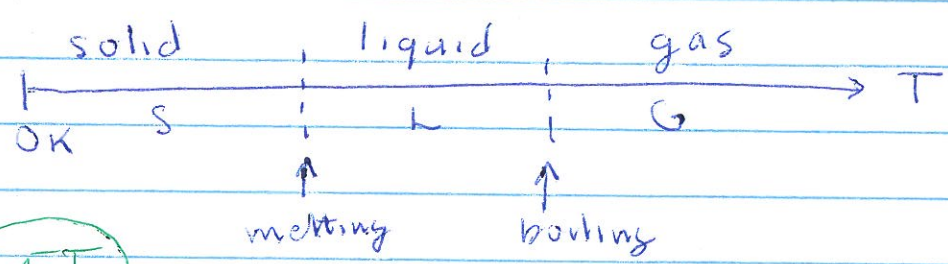 solid liquid gas
T
S L G
OK
melting boiling